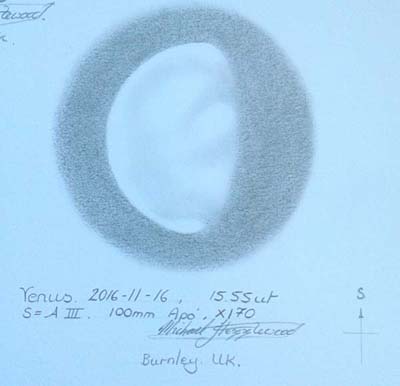 Venus. 2016-11-16, 15.55ut
S
S = A III. 100mm Apo, X170
Michael Hezzlewood
Burnley. UK.